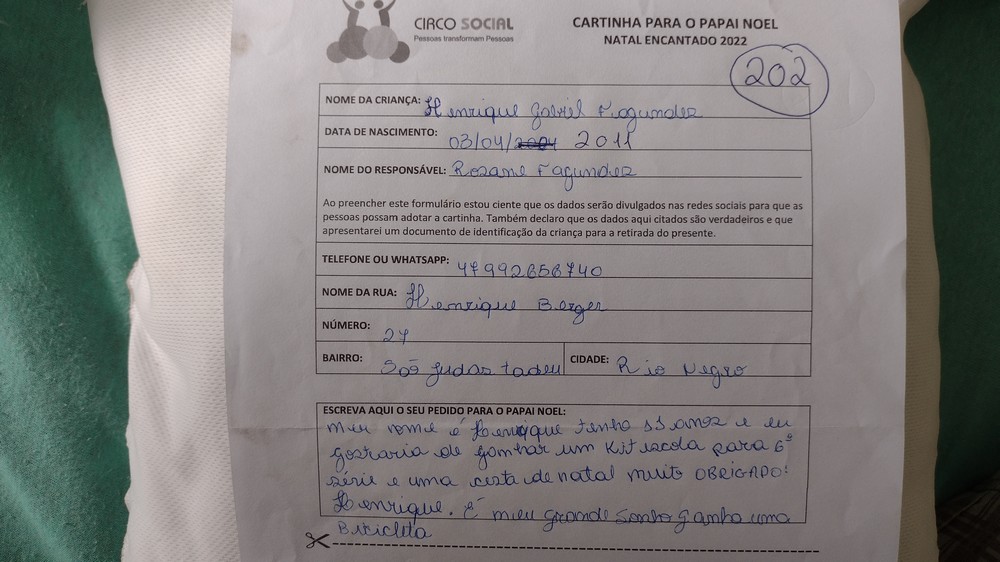 CIRCO SOCIAL
Pessoas transformam Pessoas
CARTINHA PARA O PAPAI NOEL
NATAL ENCANTADO 2022
202
NOME DA CRIANÇA: Henrique Gabriel Fagundes
DATA DE NASCIMENTO: 03/04/ 2011
NOME DO RESPONSÁVEL: Rosane Fagundes
Ao preencher este formulário estou ciente que os dados serão divulgados nas redes sociais para que as
pessoas possam adotar a cartinha. Também declaro que os dados aqui citados são verdadeiros e que
apresentarei um documento de identificação da criança para a retirada do presente.
TELEFONE OU WHATSAPP: 47992656740
NOME DA RUA: Henrique Berger
NÚMERO: 27
BAIRRO: São Judas tadeu CIDADE: Rio Negro
ESCREVA AQUI O SEU PEDIDO PARA O PAPAI NOEL:
meu nome é Henrique tenho 11 anos e eu
gostaria de ganhar um Kit escola para 6ª
série e uma cesta de natal muito OBRIGADO!
Henrique. É meu grande sonho ganha uma
Bicicleta